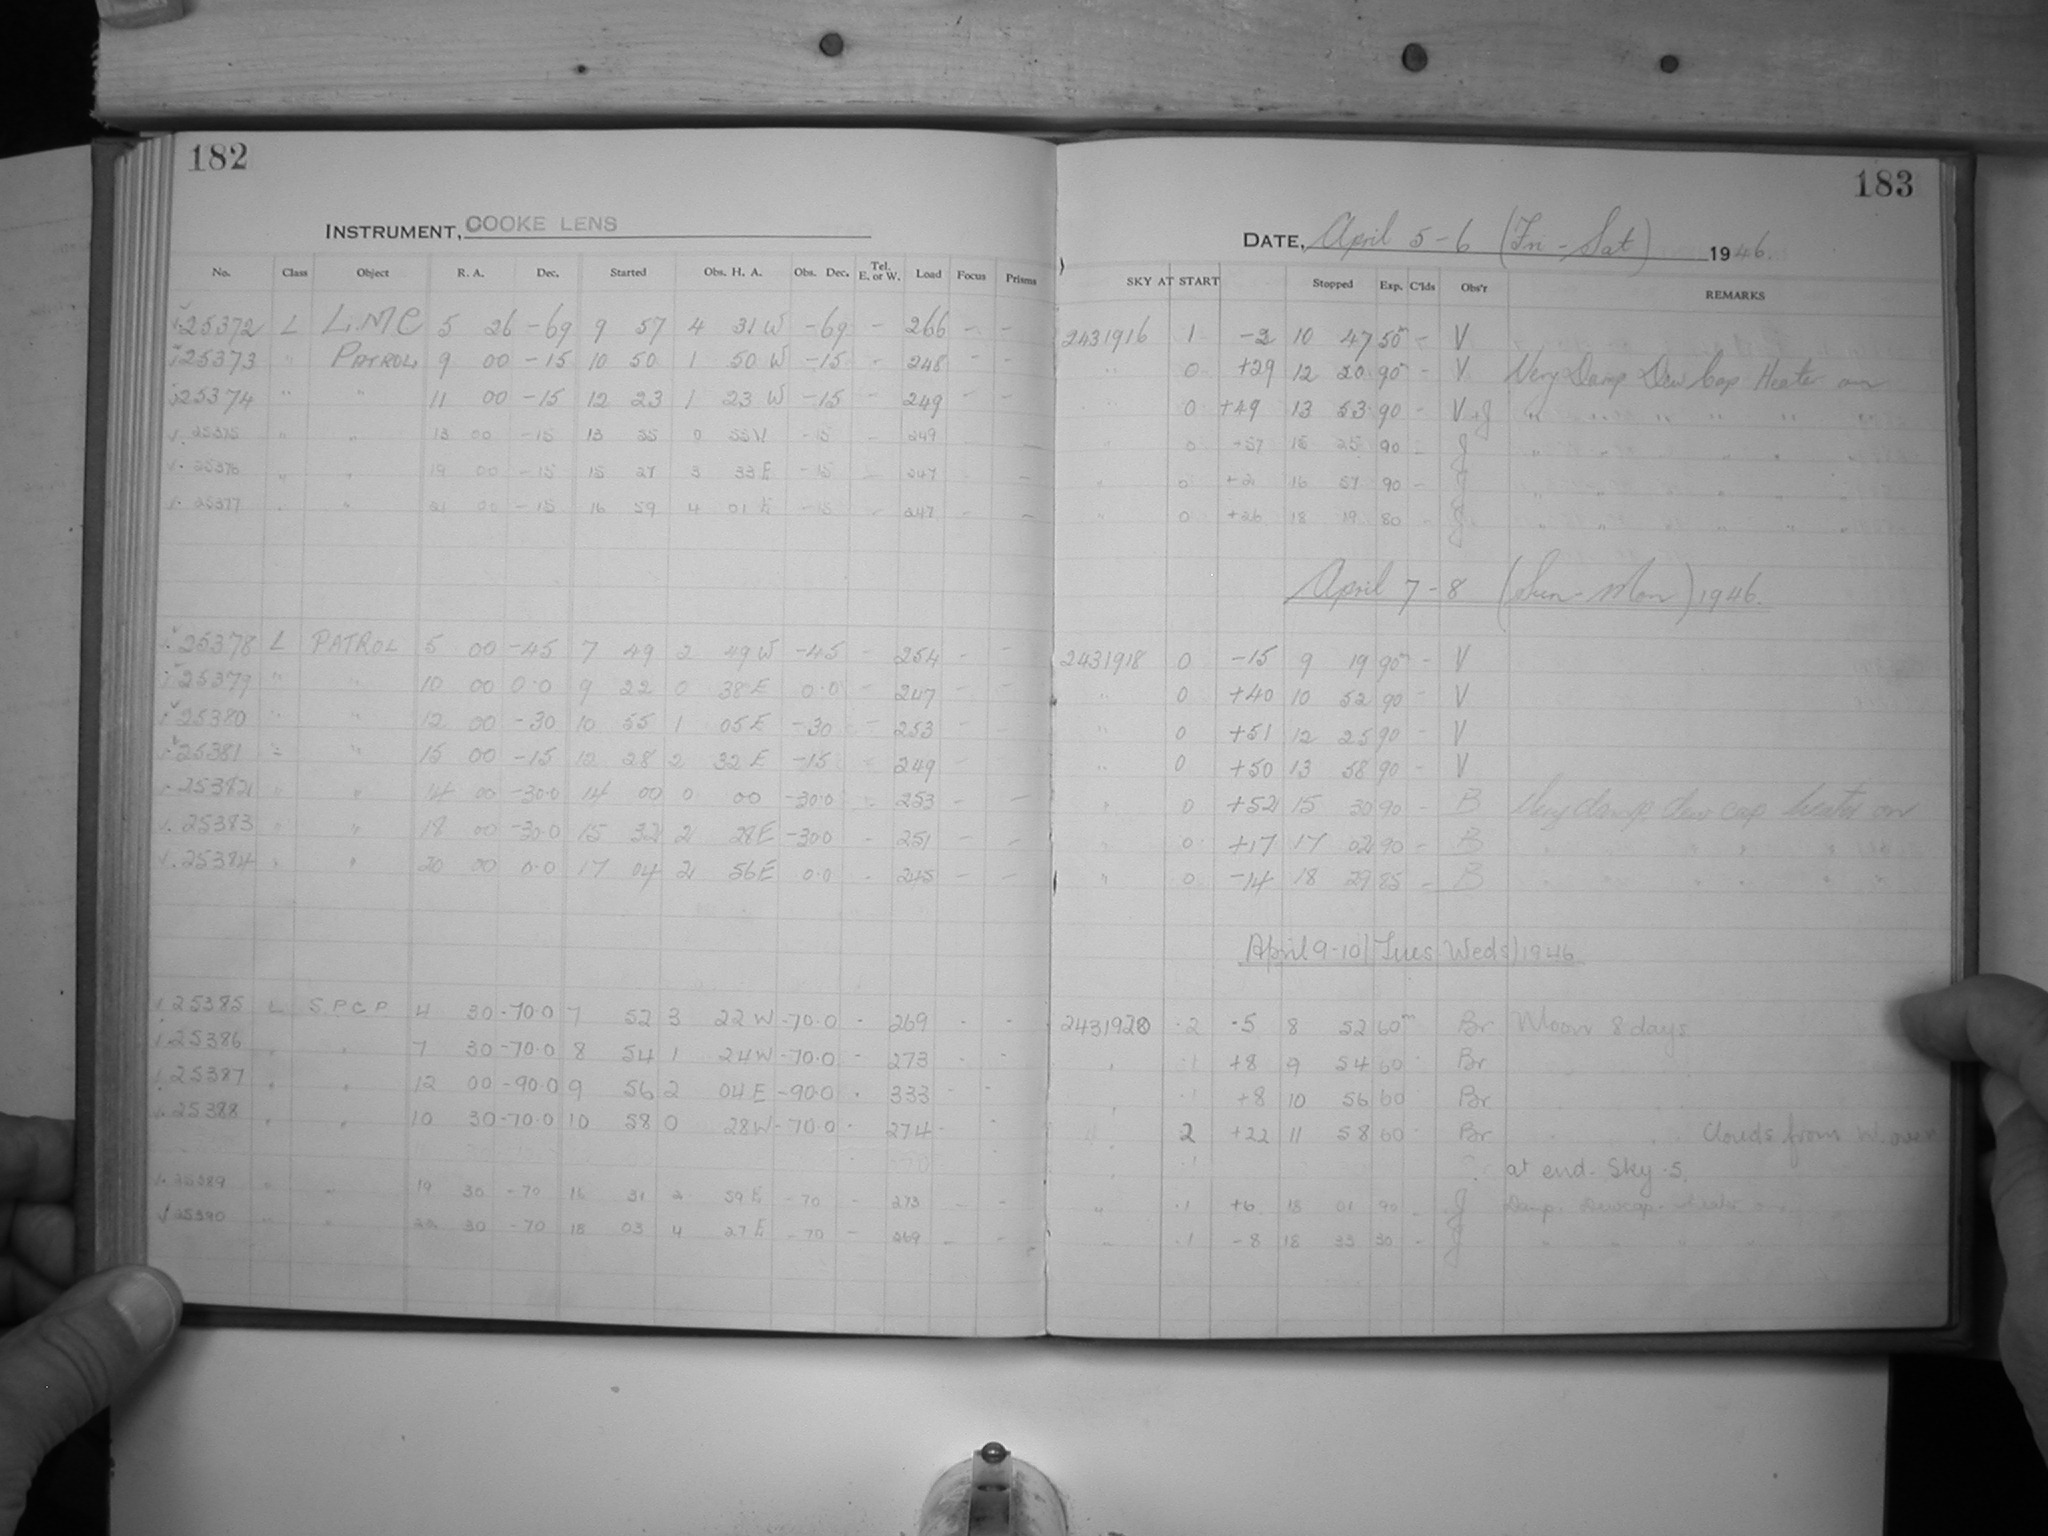 182
INSTRUMENT, COOKE LENS
No. Class Object R. A. Dec. Started Obs. H. A. Obs. Dec. Tel. E. or W. Load Focus Prisms
25372 L L.M.C 5 26 -69 9 57 4 31 W -69 - 266 - -
25373 " PATROL 9 00 -15 10 50 1 50 W -15 - 248 - -
25374 " " 11 00 -15 12 23 1 23 W -15 - 249 - -
25375 " " 13 00 -15 13 55 0 55 W -15 - 249 -
25376 " " 19 00 -15 15 27 3 33 E -15 - 247 - -
25377 " " 21 00 -15 16 59 4 01 E -15 - 247 - -
25378 L PATROL 5 00 -45 7 49 2 49 W -45 - 254 - -
25379 " " 10 00 0.0 9 22 0 38 E 0.0 - 247 - -
25380 " " 12 00 -30 10 55 1 05 E -30 - 253 - -
25381 " " 15 00 -15 12 28 2 32 E -15 - 249 - -
25382 " " 14 00 -30.0 14 00 0 00 -30.0 253 - -
25383 " " 18 00 -30.0 15 32 2 28 E -30.0 - 251 - -
25384 " " 20 00 0.0 17 04 2 56 E 0.0 - 245 - -
25385 L S.P.C.P 4 30 -70.0 7 52 3 22 W -70.0 - 269 - -
25386 " " 7 30 -70.0 8 54 1 24 W -70.0 - 273 - -
25387 " " 12 00 -90.0 9 56 2 04 E -90.0 - 333 - -
25388 " " 10 30 -70.0 10 58 0 28 W -70.0 - 274 - -
25389 " " 19 30 -70 16 31 2 59 E -70 - 273 - -
25390 " " 22 30 -70 18 03 4 27 E -70 - 269 - -
183
DATE, April 5-6 (Fri-Sat) 1946.
SKY AT START Stopped Exp. C'lds Obs'r REMARKS
2431916 1 -2 10 47 50m - V
" 0 +29 12 20 90m - V Very Damp Dew Cap Heater on
" 0 +49 13 53 90 - V+J " " " " " "
" 0 +57 15 25 90 - J " " " " " "
" 0 +21 16 57 90 - J " " " " " "
" 0 +26 18 19 80 - J " " " " " "
April 7-8 (Sun-Mon) 1946.
2431918 0 -15 9 19 90m - V
" 0 +40 10 52 90 - V
" 0 +51 12 25 90 - V
" 0 +50 13 58 90 - V
" 0 +52 15 30 90 - B Very damp dew cap heater on
" 0 +17 17 02 90 - B " " " " " "
" 0 -14 18 29 85 - B " " " " " "
April 9-10 (Tues Weds) 1946
2431920 .2 -5 8 52 60m Br Moon 8 days
" .1 +8 9 54 60 Br
" .1 +8 10 56 60 Br
" 2 +22 11 58 60 Br Clouds from W. over
at end. Sky .5.
" .1 +6 18 01 90 - J Damp. Dewcap heater on
" .1 -8 18 33 30 - J " " " "